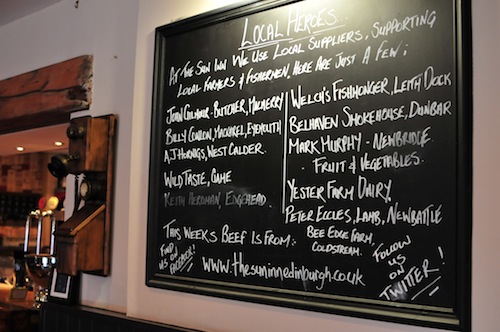 LOCAL HEROES...
AT THE SUN INN WE USE LOCAL SUPPLIERS, SUPPORTING
LOCAL FARMERS & FISHERMEN, HERE ARE JUST A FEW;
JOHN GILMOUR - BUTCHER, MACMERRY
BILLY COWON, MACKAREL, EYEMOUTH
A.J HORNIGS, WEST CALDER.
WILD TASTE, GAME
KEITH HERDMAN, EDGEHEAD.
WELCH'S FISHMONGER, LEITH DOCK
BELHAVEN SMOKEHOUSE, DUNBAR
MARK MURPHY - NEWBRIDGE
FRUIT & VEGETABLES.
YESTER FARM DAIRY.
PETER ECCLES, LAMB, NEWBATTLE
THIS WEEKS BEEF IS FROM:-
BEE EDGE FARM,
COLDSTREAM.
FIND
US ON
FACEBOOK!
www.thesuninnedinburgh.co.uk
FOLLOW
US
ON
TWITTER!